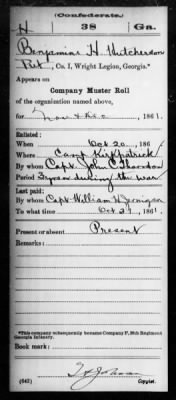 (Confederate.)
H 38 Ga.
Benjamine H. Hutcherson
Pvt, Co. I, Wright Legion, Georgia.*
Appears on
Company Muster Roll
of the organization named above,
for Nov & Dec, 1861.
Enlisted:
When Oct 20, 186
Where Camp Kirkpatrick
By whom Capt John C Thornton
Period 3 years or during the war
Last paid:
By whom Capt William H Jernigan
To what time Oct 31, 1861
Present or absent Present
Remarks:
*This company subsequently became Company F, 38th Regiment
Georgia Infantry.
Book mark:
(642)
Copyist.